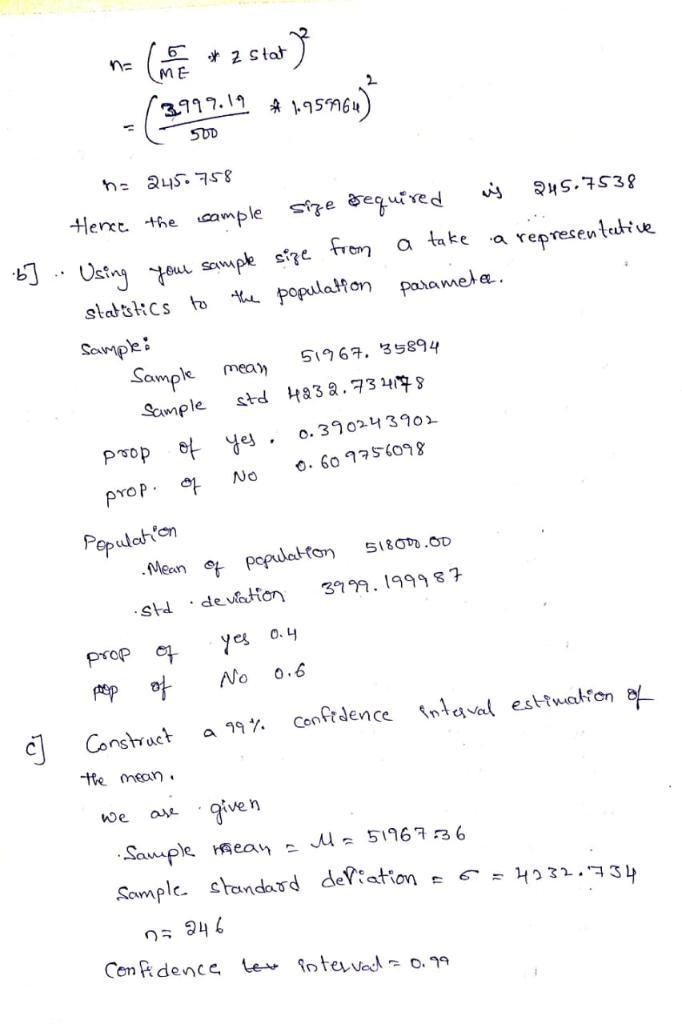 n= (σ/ME * z stat)²
= (3999.19/500 * 1.959964)²
n= 245.758
Hence the sample size required is 245.7538
b] .. Using your sample size from a take a representative
statistics to the population parameter.
Sample:
Sample mean 51967.35894
Sample std 4232.734178
prop of yes. 0.390243902
prop. of No 0.609756098
Population
.Mean of population 518000.00
.std .deviation 3999.199987
prop of yes 0.4
pop of No 0.6
c] Construct a 99% confidence interval estimation of
the mean.
we are given
.Sample mean = M = 51967.36
Sample standard deviation = σ = 4232.734
n= 246
Confidence interval = 0.99